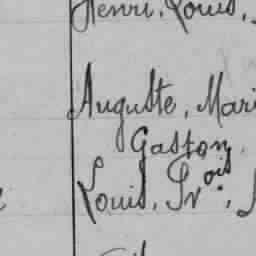 Henri, Louis,
Auguste, Mari
Gaston,
Louis, Fr^ois.,